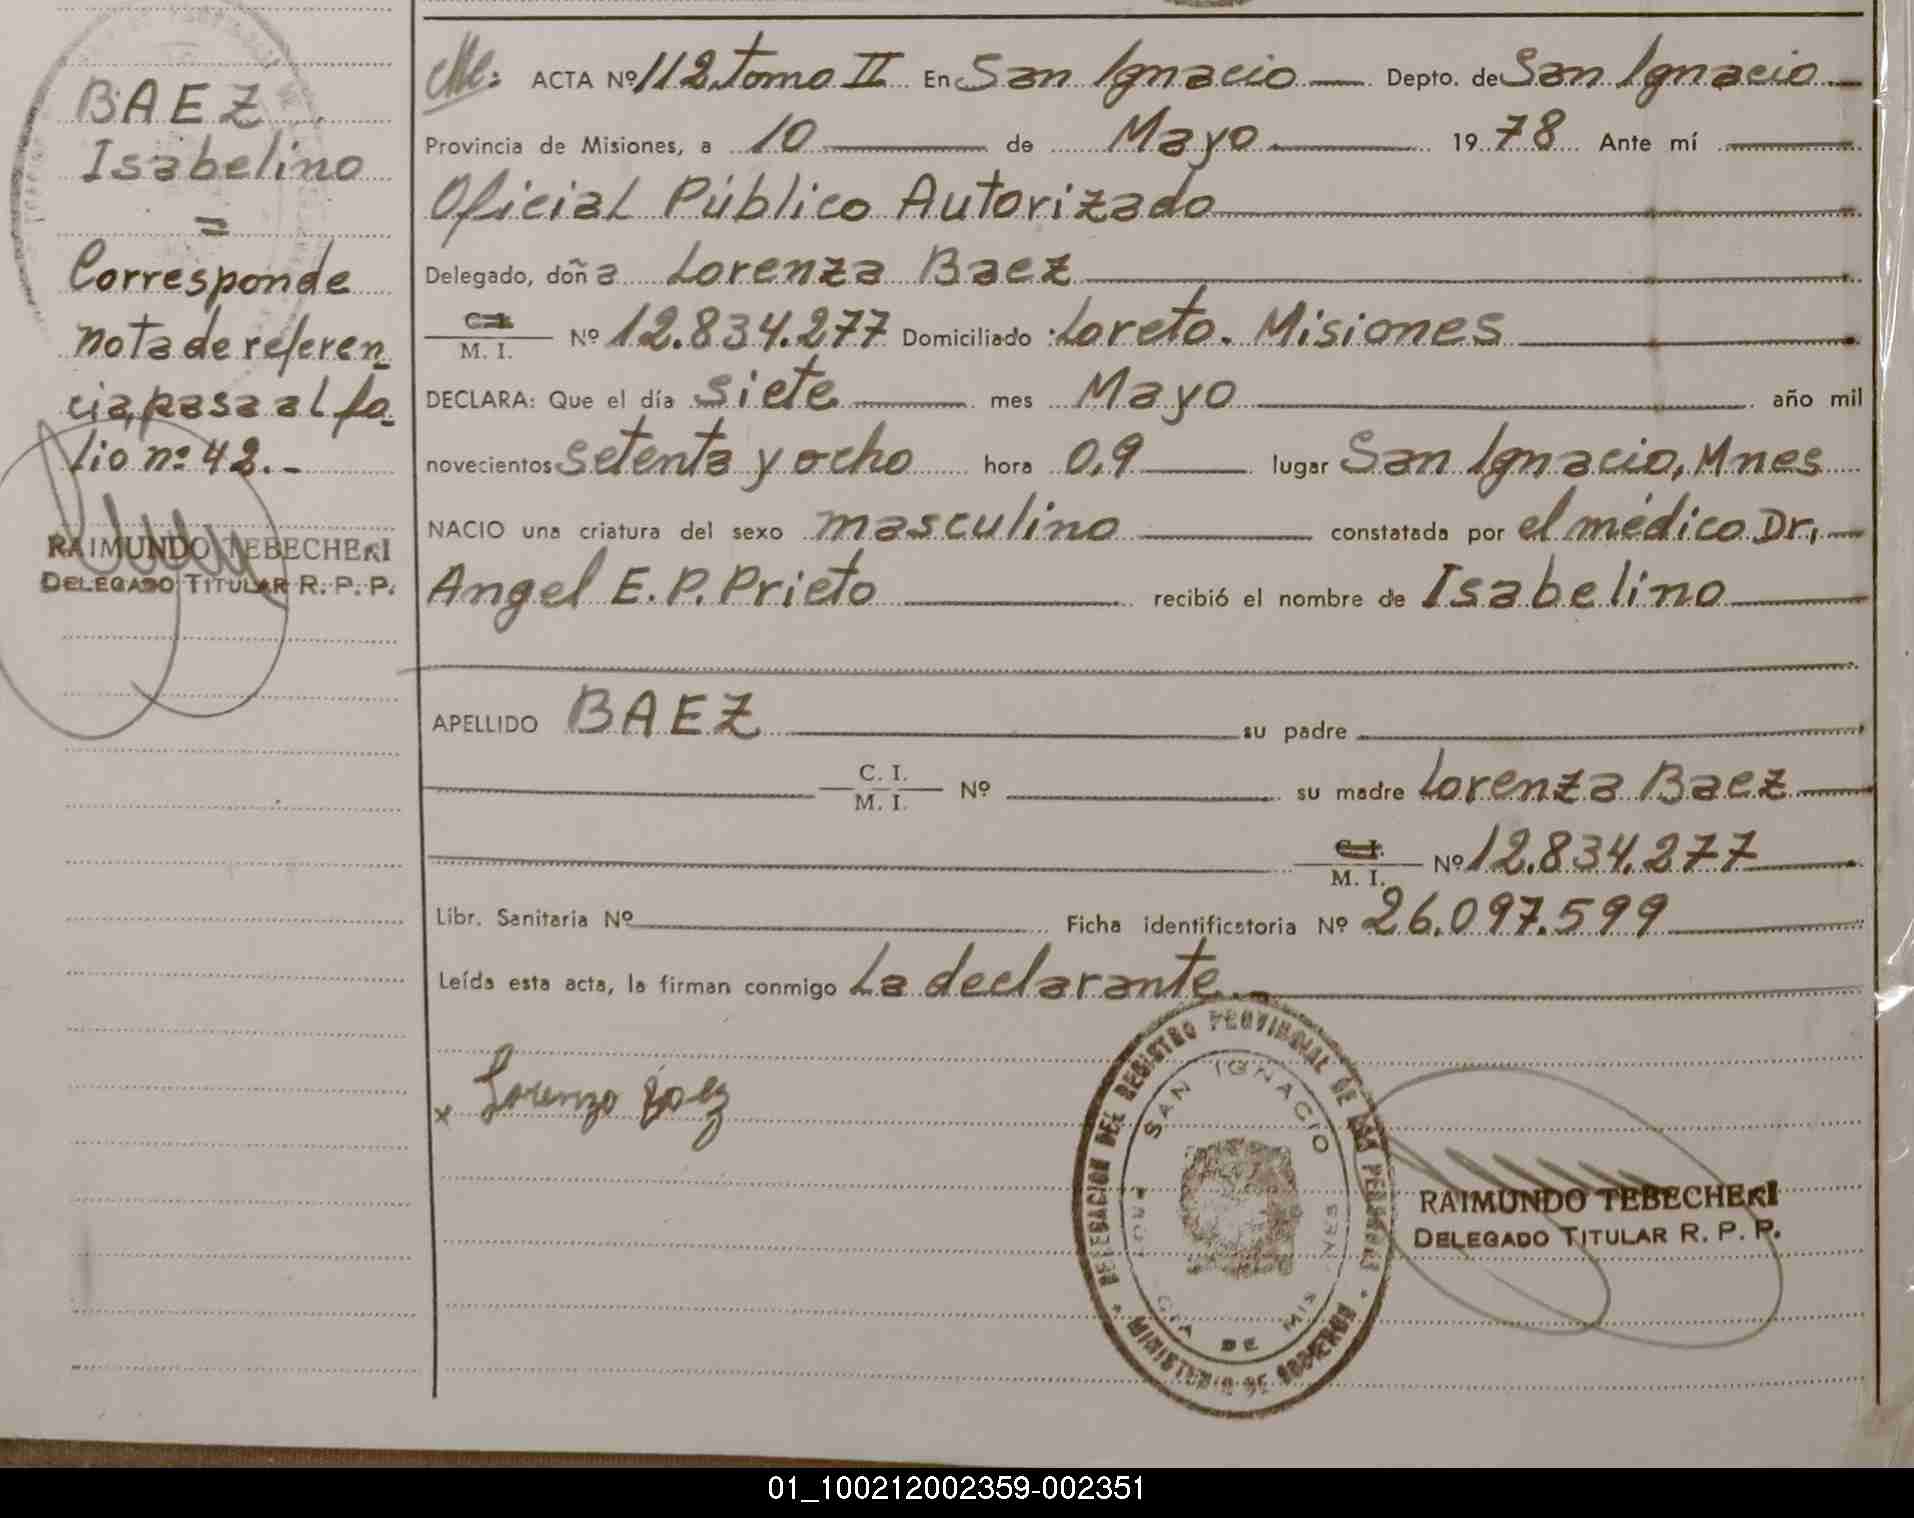 BAEZ
Isabelino
=
Corresponde
nota de referen_
cia, pasa al fo_
lio nº 42._
RAIMUNDO TEBECHERI
DELEGADO TITULAR R. P. P.
ACTA Nº 112 Tomo II En San Ignacio Depto. de San Ignacio
Provincia de Misiones, a 10 de Mayo 1978 Ante mí
Oficial Público Autorizado
Delegado, doña Lorenza Baez
C. I. / M. I. Nº 12.834.277 Domiciliado: Loreto. Misiones
DECLARA: Que el día siete mes Mayo año mil
novecientos setenta y ocho hora 0,9 lugar San Ignacio, Mnes
NACIO una criatura del sexo masculino constatada por el médico Dr,
Angel E. P. Prieto recibió el nombre de Isabelino
APELLIDO BAEZ su padre
C. I. / M. I. Nº su madre Lorenza Baez
C. I. / M. I. Nº 12.834.277
Libr. Sanitaria Nº Ficha identificatoria Nº 26.097.599
Leída esta acta, la firman conmigo La declarante._
x Lorenzo Baez
DELEGACION DEL REGISTRO PROVINCIAL DE LAS PERSONAS
SAN IGNACIO
DE MISIONES
MINISTERIO DE GOBIERNO
RAIMUNDO TEBECHERI
DELEGADO TITULAR R. P. P.
01_100212002359-002351